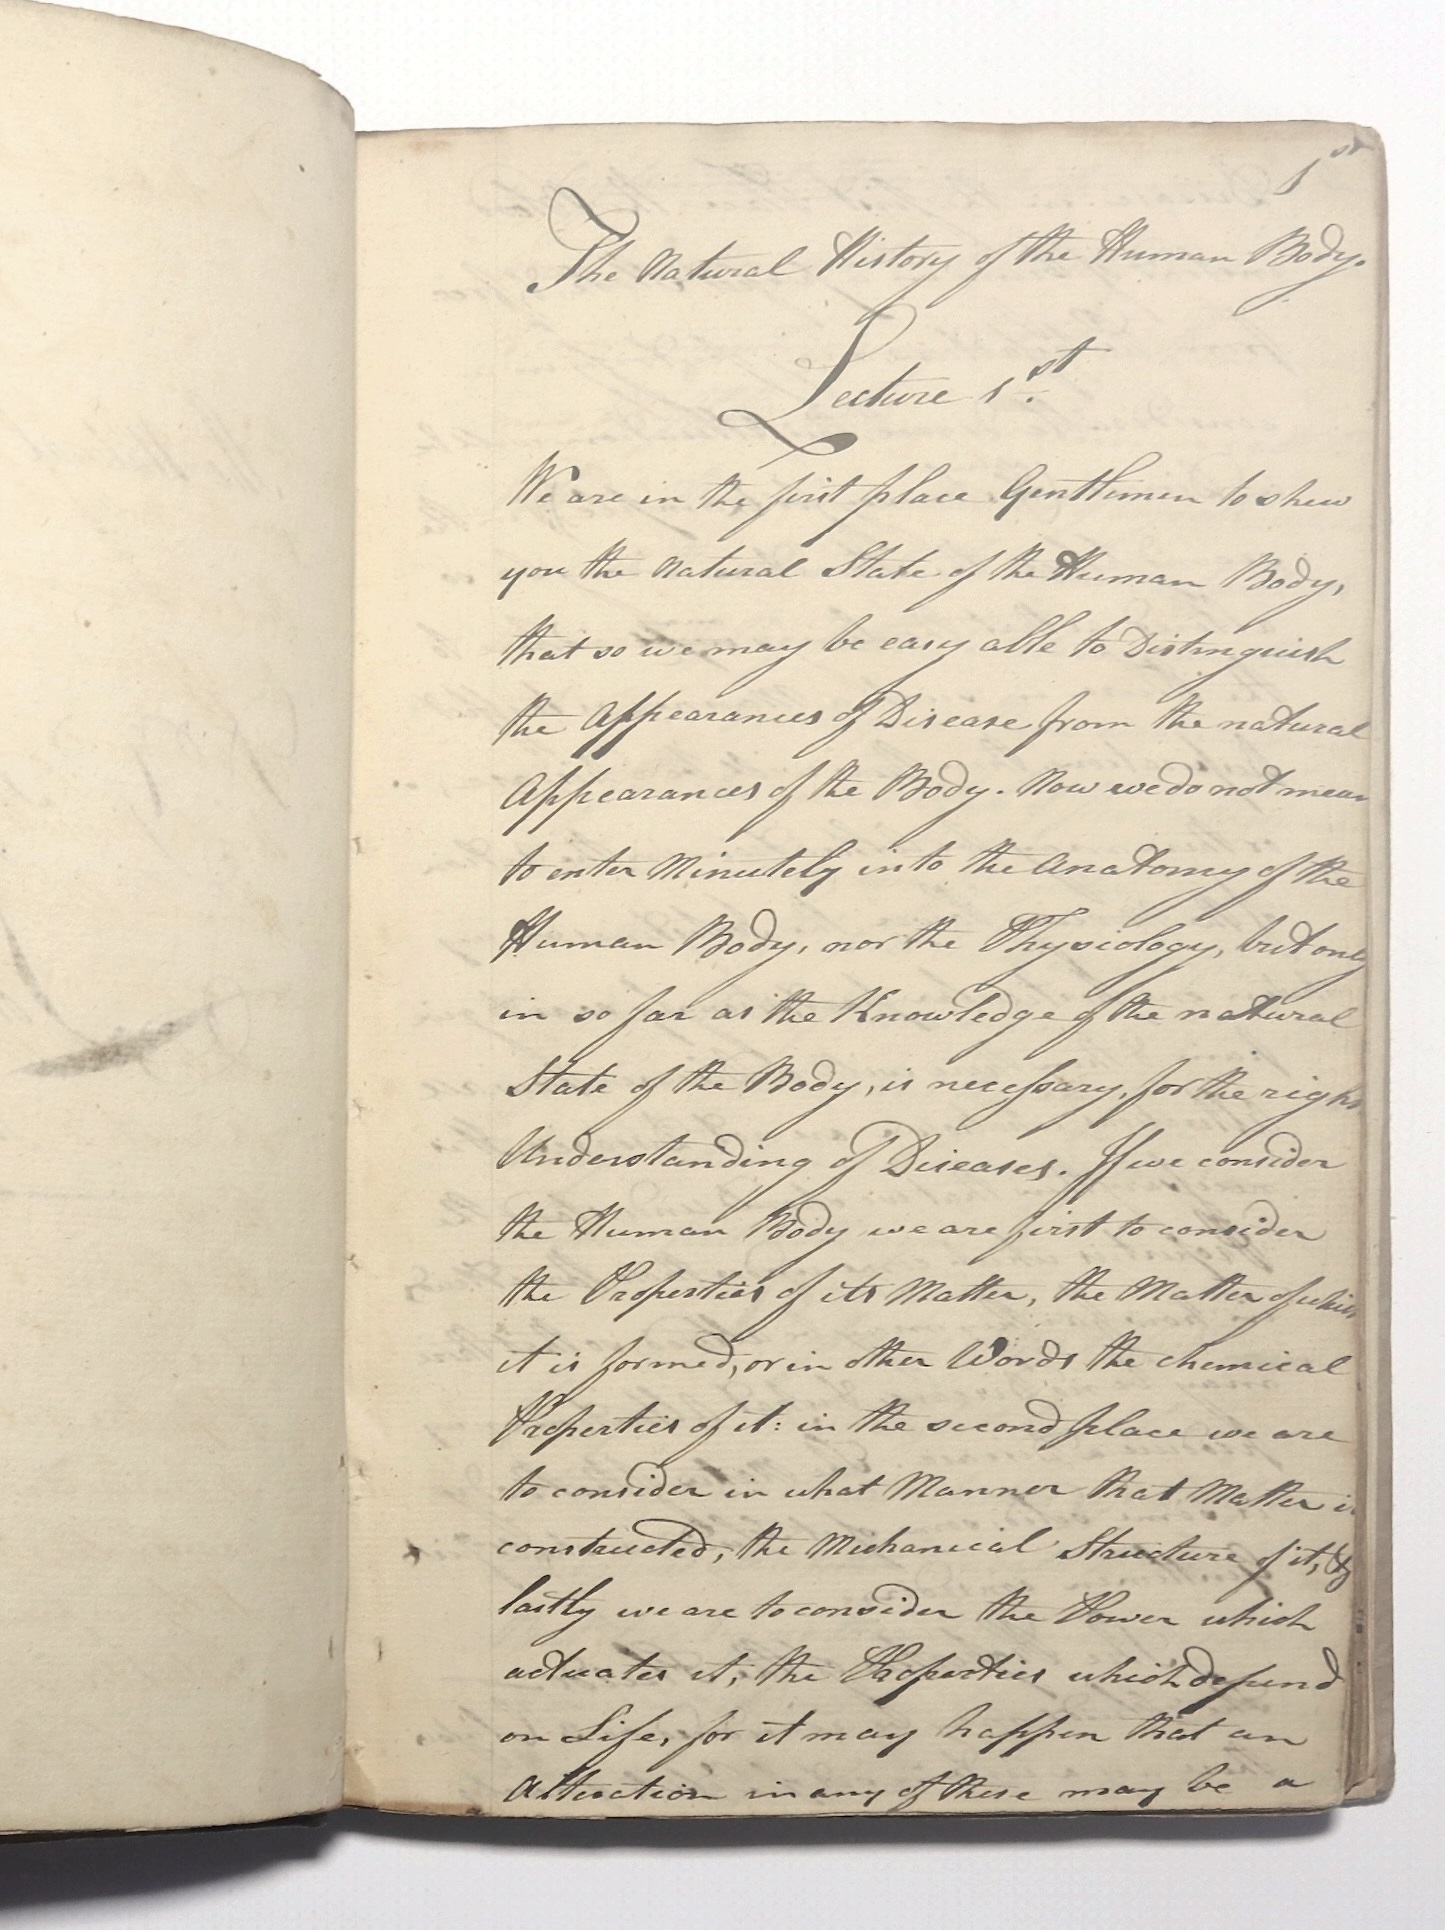 1st
The Natural History of the Human Body.
Lecture 1st.
We are in the first place Gentlemen to shew
you the Natural State of the Human Body,
that so we may be easy able to Distinguish
the Appearances of Disease from the natural
Appearances of the Body. Now we do not mean
to enter Minutely into the Anatomy of the
Human Body, nor the Physiology, but only
in so far as the Knowledge of the natural
State of the Body, is necessary, for the right
Understanding of Diseases. If we consider
the Human Body we are first to consider
the Properties of its Matter, the Matter of which
it is formed, or in other Words the chemical
Properties of it: in the second place we are
to consider in what Manner that Matter is
constructed, the Mechanical Structure of it, &
lastly we are to consider the Power which
actuates it, the Properties which depend
on Life, for it may happen that an
Alteration in any of these may be a